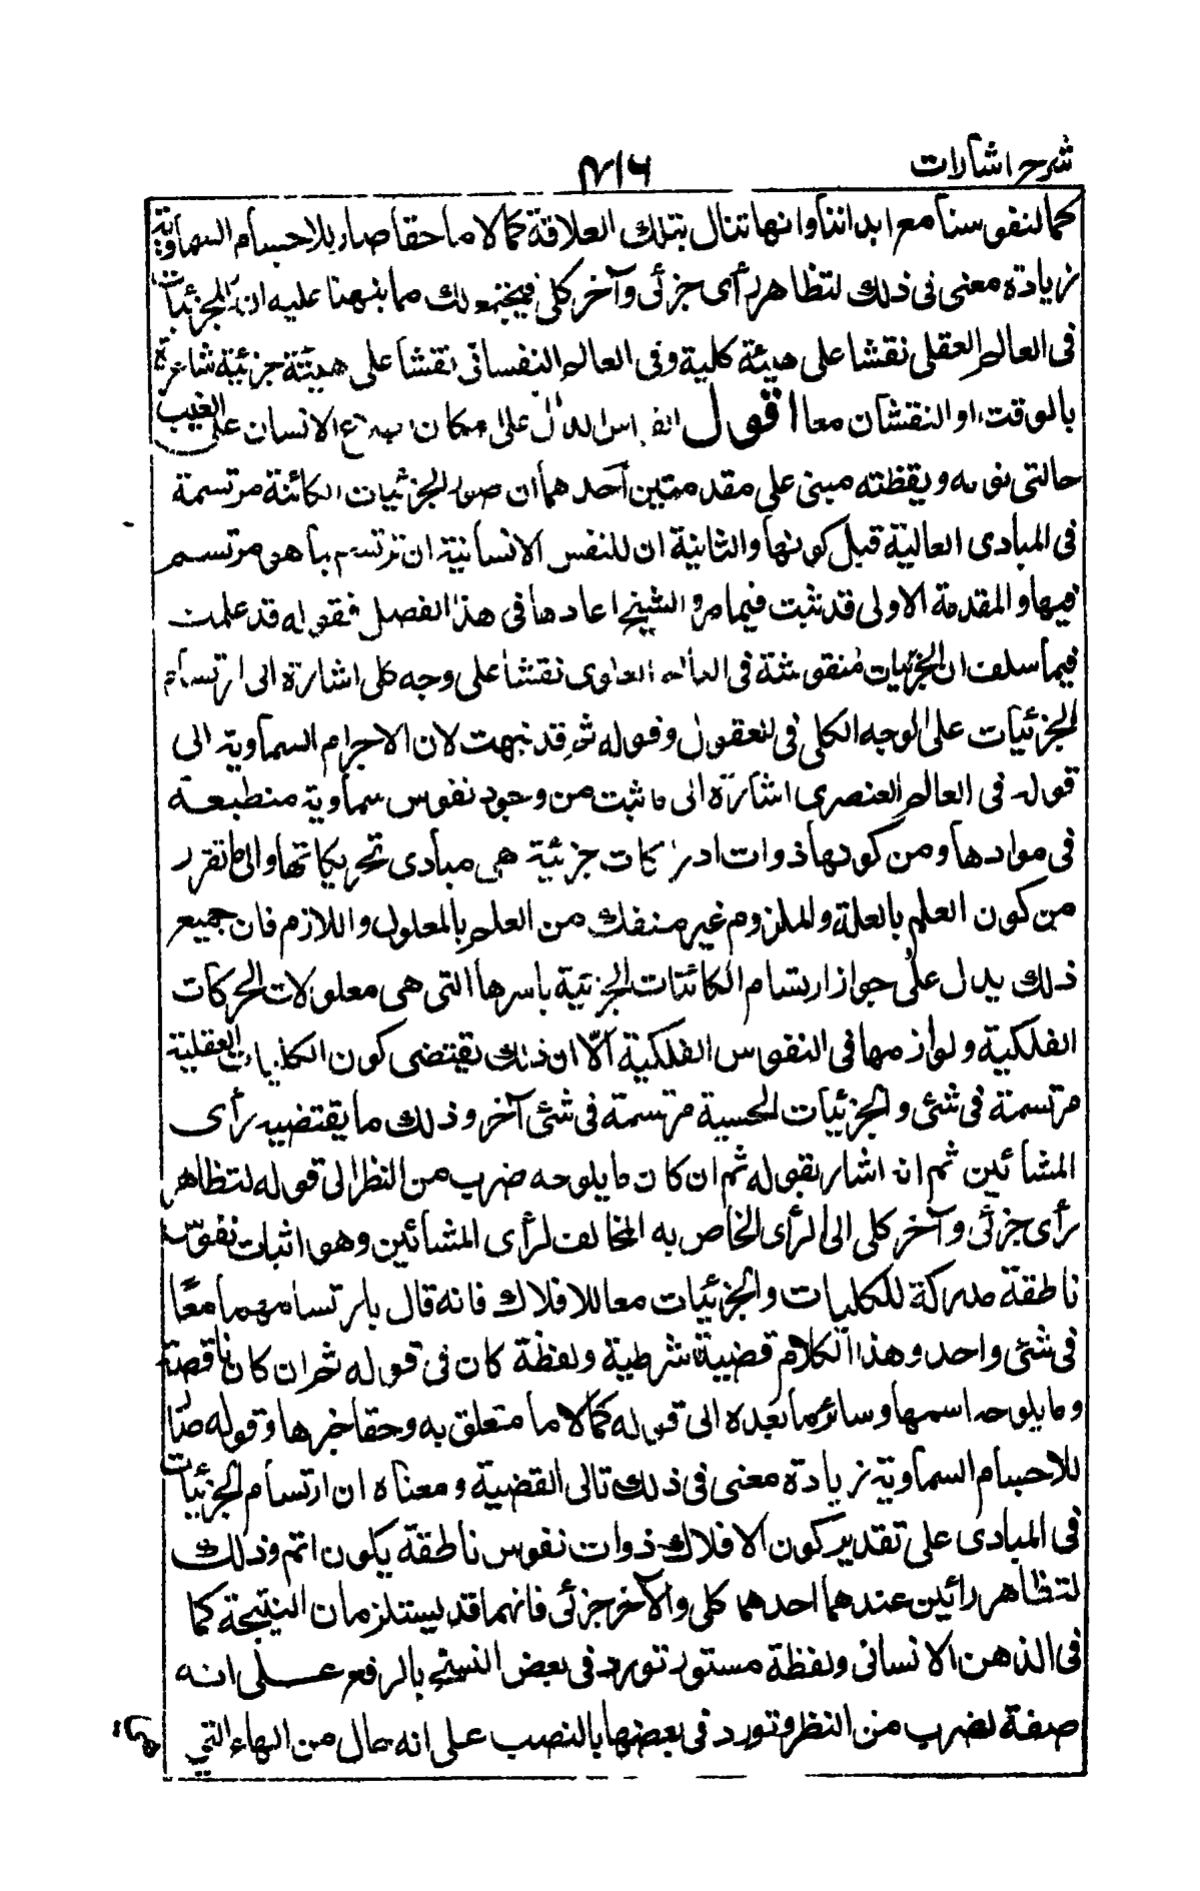 شرح اشارات
٧١٦
كما لنفوسنا مع ابداننا وانها تنال بتلك العلاقة كمالا ما حقا صار للاجسام السماوية
زيادة معنى فى ذلك لتظاهر رأى جزئى وآخر كلى فيجتمع لك مما نبهنا عليه ان للجزئيات
فى العالم العقلى نقشا على هيئة كلية وفى العالم النفسانى نقشا على هيئة جزئية شاعرة
بالوقت او النقشان معا اقول على الانسان على الغيب
حالتى نومه ويقظته مبنى على مقدمتين احدهما ان صور الجزئيات الكائنة مرتسمة
فى المبادى العالية قبل كونها والثانية ان للنفس الانسانية ان ترتسم بما هو مرتسم
فيها والمقدمة الاولى قد ثبت فيما مر والشيخ اعادها فى هذا الفصل فقوله قد علمت
فيما سلف ان الجزئيات منقوشة فى العالم العلوى نقشا على وجه كلى اشارة الى ارتسام
الجزئيات على الوجه الكلى فى العقول وقوله ثم قد نبهت لان الاجرام السماوية الى
قوله فى العالم العنصرى اشارة الى ما ثبت من وجود نفوس سماوية منطبعة
فى موادها ومن كونها ذوات ادراكات جزئية هى مبادى تحريكاتها والى ما تقرر
من كون العلم بالعلة والملزوم غير منفك من العلم بالمعلول واللازم فان جميع
ذلك يدل على جواز ارتسام الكائنات الجزئية باسرها التى هى معلولات الحركات
الفلكية ولوازمها فى النفوس الفلكية الّا ان ذلك يقتضى كون الكليات العقلية
مرتسمة فى شئ والجزئيات الحسية مرتسمة فى شئ آخر وذلك ما يقتضيه رأى
المشائين ثم انه اشار بقوله ثم ان كان ما يلوحه ضرب من النظر الى قوله لتظاهر
رأى جزئى وآخر كلى الى الرأى الخاص به المخالف لرأى المشائين وهو اثبات نفوس
ناطقة مدركة للكليات والجزئيات معا للافلاك فانه قال بارتسامهما معًا
فى شئ واحد وهذا الكلام قضية شرطية ولفظة كان فى قوله ثم ان كان ناقصة
وما يلوحه اسمها وسائر ما بعده الى قوله كمالا ما متعلق به وحقا خبرها وقوله صار
للاجسام السماوية زيادة معنى فى ذلك تالى القضية ومعناه ان ارتسام الجزئيات
فى المبادى على تقدير كون الافلاك ذوات نفوس ناطقة يكون اتم وذلك
لتظاهر رائين عندهما احدهما كلى والآخر جزئى فانهما قد يستلزمان النتيجة كما
فى الذهن الانسانى ولفظة مستور تورد فى بعض النسخ بالرفع على انه
صفة لضرب من النظر وتورد فى بعضها بالنصب على انه حال من الهاء التى